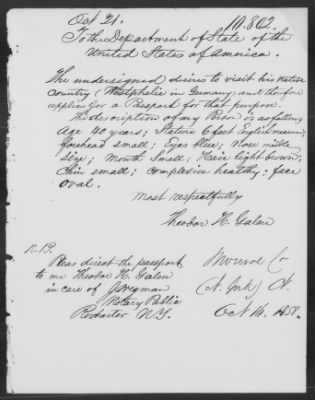 Oct 21.
10.802.
To the Department of State of the
United States of America.
The undersigned desires to visit his native
country (Westphalia in Germany) and therefore
applies for a Passport for that purpose.
The description of my Person is as follows
Age 40 years; Stature 6 feet English measure;
forehead small; Eyes blue; Nose middle
size; Mouth Small; Hair light brown;
Chin small; complexion healthy; face
oval.
Most respectfully
Theodor H. Galen
N.B.
Pleas direct the passport
to me Theodor H. Galen
in care of
Notary Public
Rochester N.Y.
Monroe Co
(N. York)
Oct 14. 1858.